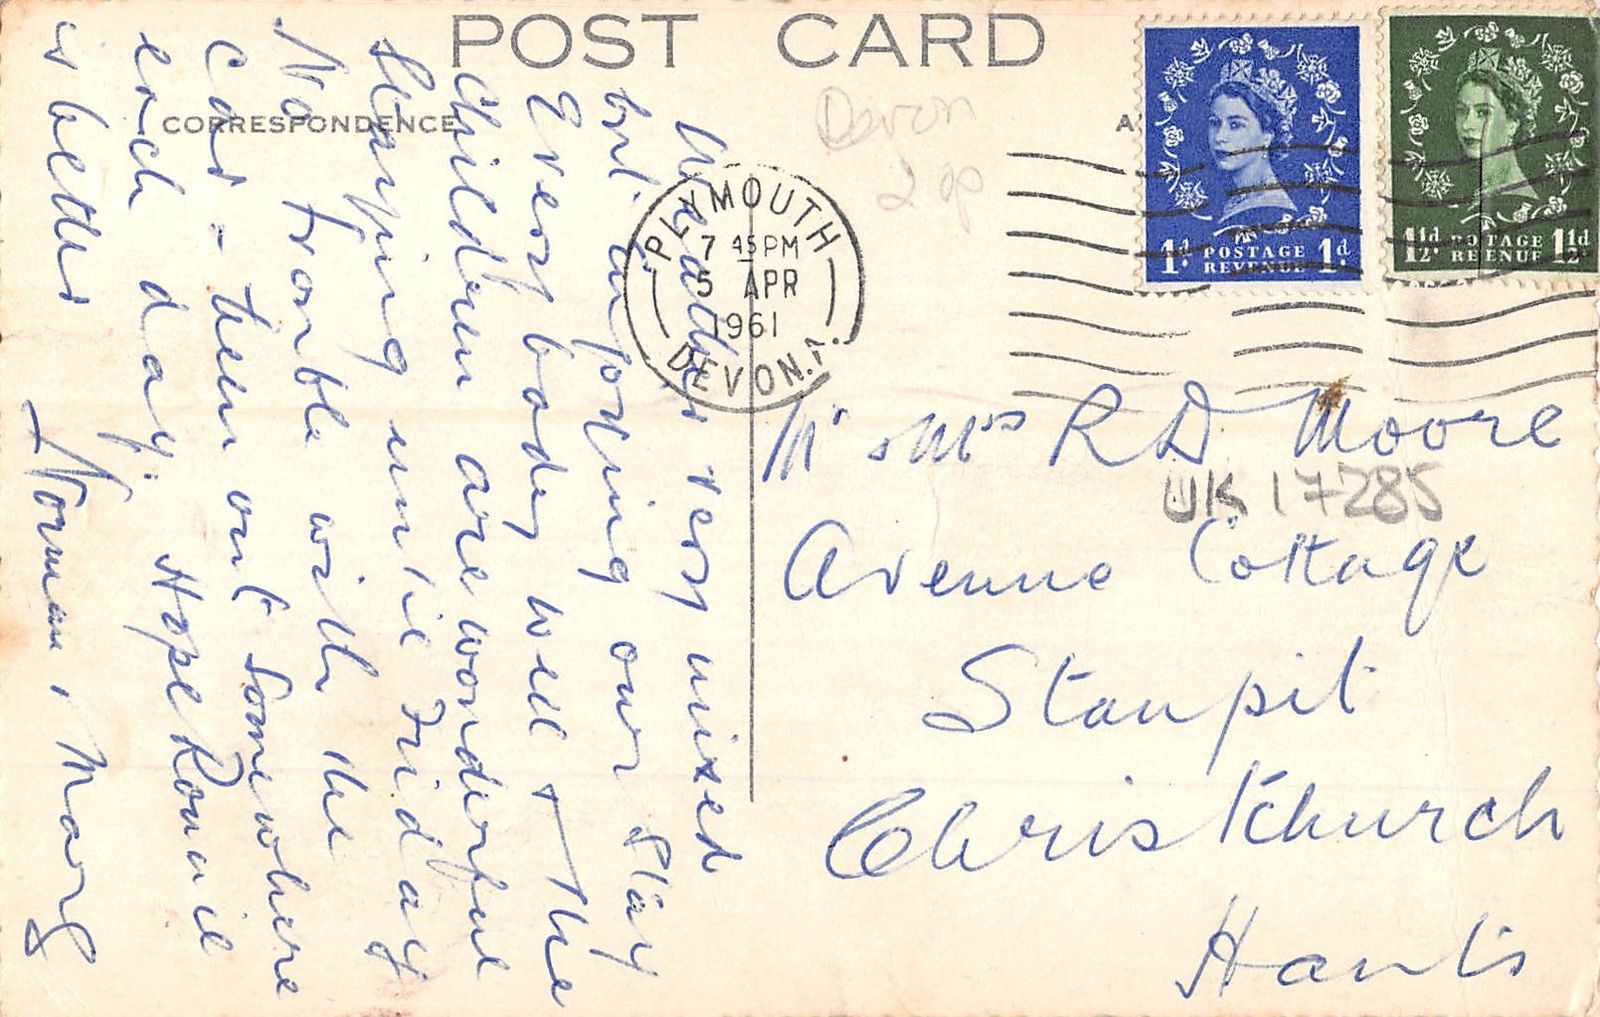 POST CARD
CORRESPONDENCE
A
Devon
20p
PLYMOUTH
7 45 PM
5 APR
1961
DEVON.
1d POSTAGE REVENUE 1d
1½d POSTAGE REVENUE 1½d
Weather very mixed
but enjoying our stay
Every body well & the
Children are wonderful
Stopping until Friday
No trouble with the
Car - been out somewhere
each day. Hope Ronnie
is better
Norman, Marg
Mr & Mrs R D Moore
UK 17285
Avenue Cottage
Stanpit
Christchurch
Hants